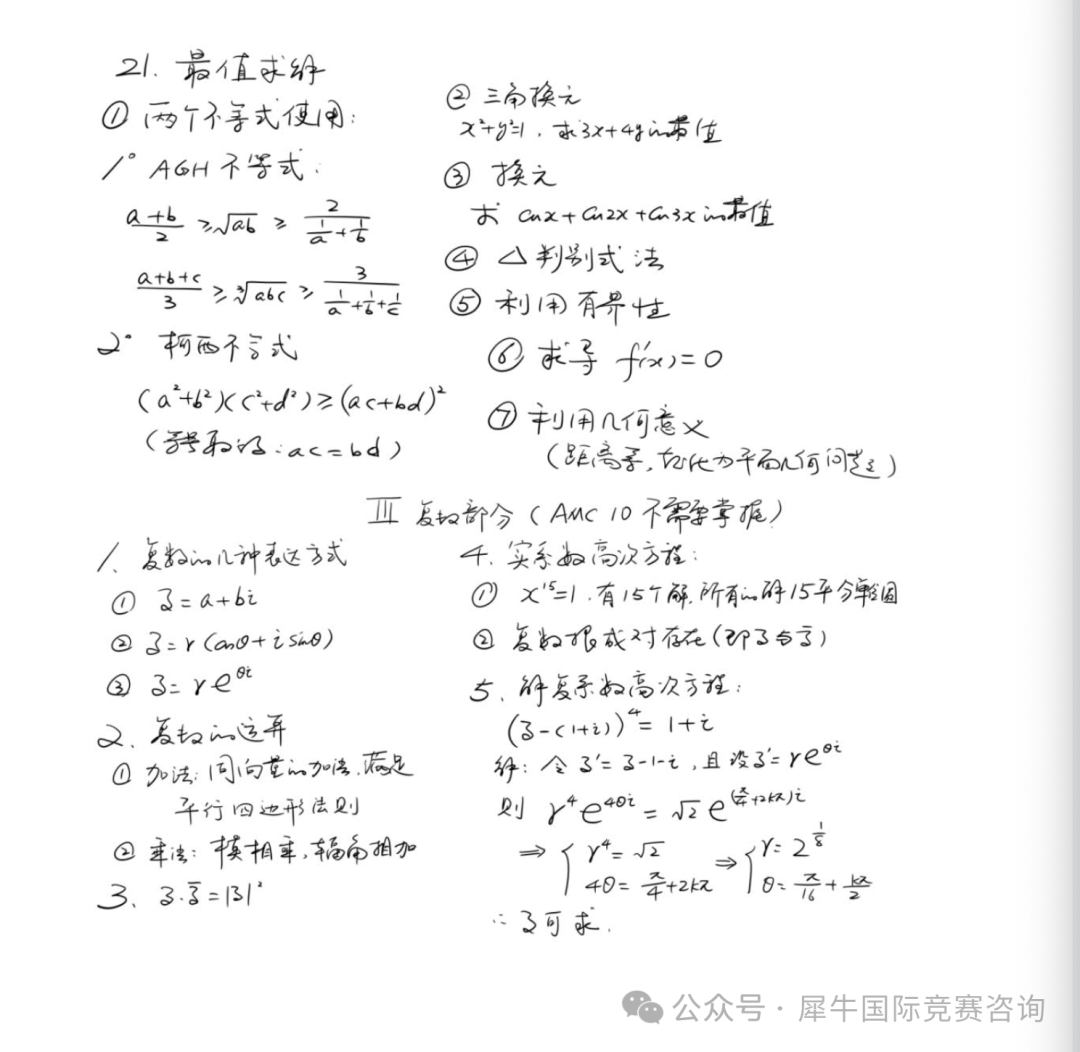 21. 最值求解
① 两个不等式使用:
1° AGH不等式:
\frac{a+b}{2} ≥ \sqrt{ab} ≥ \frac{2}{\frac{1}{a}+\frac{1}{b}}
\frac{a+b+c}{3} ≥ \sqrt[3]{abc} ≥ \frac{3}{\frac{1}{a}+\frac{1}{b}+\frac{1}{c}}
2° 柯西不等式
(a²+b²)(c²+d²)≥(ac+bd)²
(等号取的:ac=bd)
② 三角换元
x²+y²=1, 求3x+4y的最值
③ 换元
求 cosx+cos2x+cos3x的最值
④ △判别式法
⑤ 利用有界性
⑥ 求导 f'(x)=0
⑦ 利用几何意义
(距离等,转化为平面几何问题)
III 复数部分(AMC 10 不需要掌握)
1、复数的几种表达方式
① z=a+bi
② z=r(cosθ+isinθ)
③ z=re^{θi}
2、复数的运算
① 加法:同向量的加法,满足
平行四边形法则
② 乘法:模相乘,辐角相加
3、z·\bar{z}=|z|²
4、实系数高次方程:
① x^{15}=1,有15个解,所有的解15平分单位圆
② 复数根成对存在(即z与\bar{z})
5、解复系数高次方程:
(z-(1+i))⁴=1+i
解:令z'=z-1-i,且设z'=re^{θi}
则 r⁴e^{4θi}=√2e^{(\frac{π}{4}+2kπ)i}
⇒ { r⁴=√2 ⇒ { r=2^{\frac{1}{8}}
4θ=\frac{π}{4}+2kπ θ=\frac{π}{16}+\frac{kπ}{2}
∴ z可求.
公众号·犀牛国际竞赛咨询